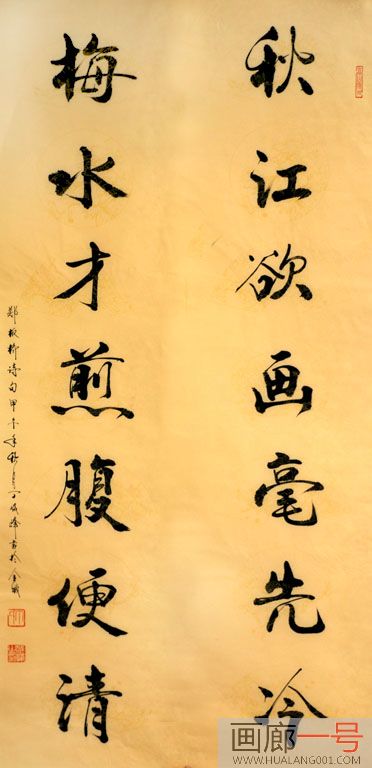 秋江欲画毫先冷
梅水才煎腹便清
郑板桥诗句甲午年秋月
画廊一号
WWW.HUALANG001.COM